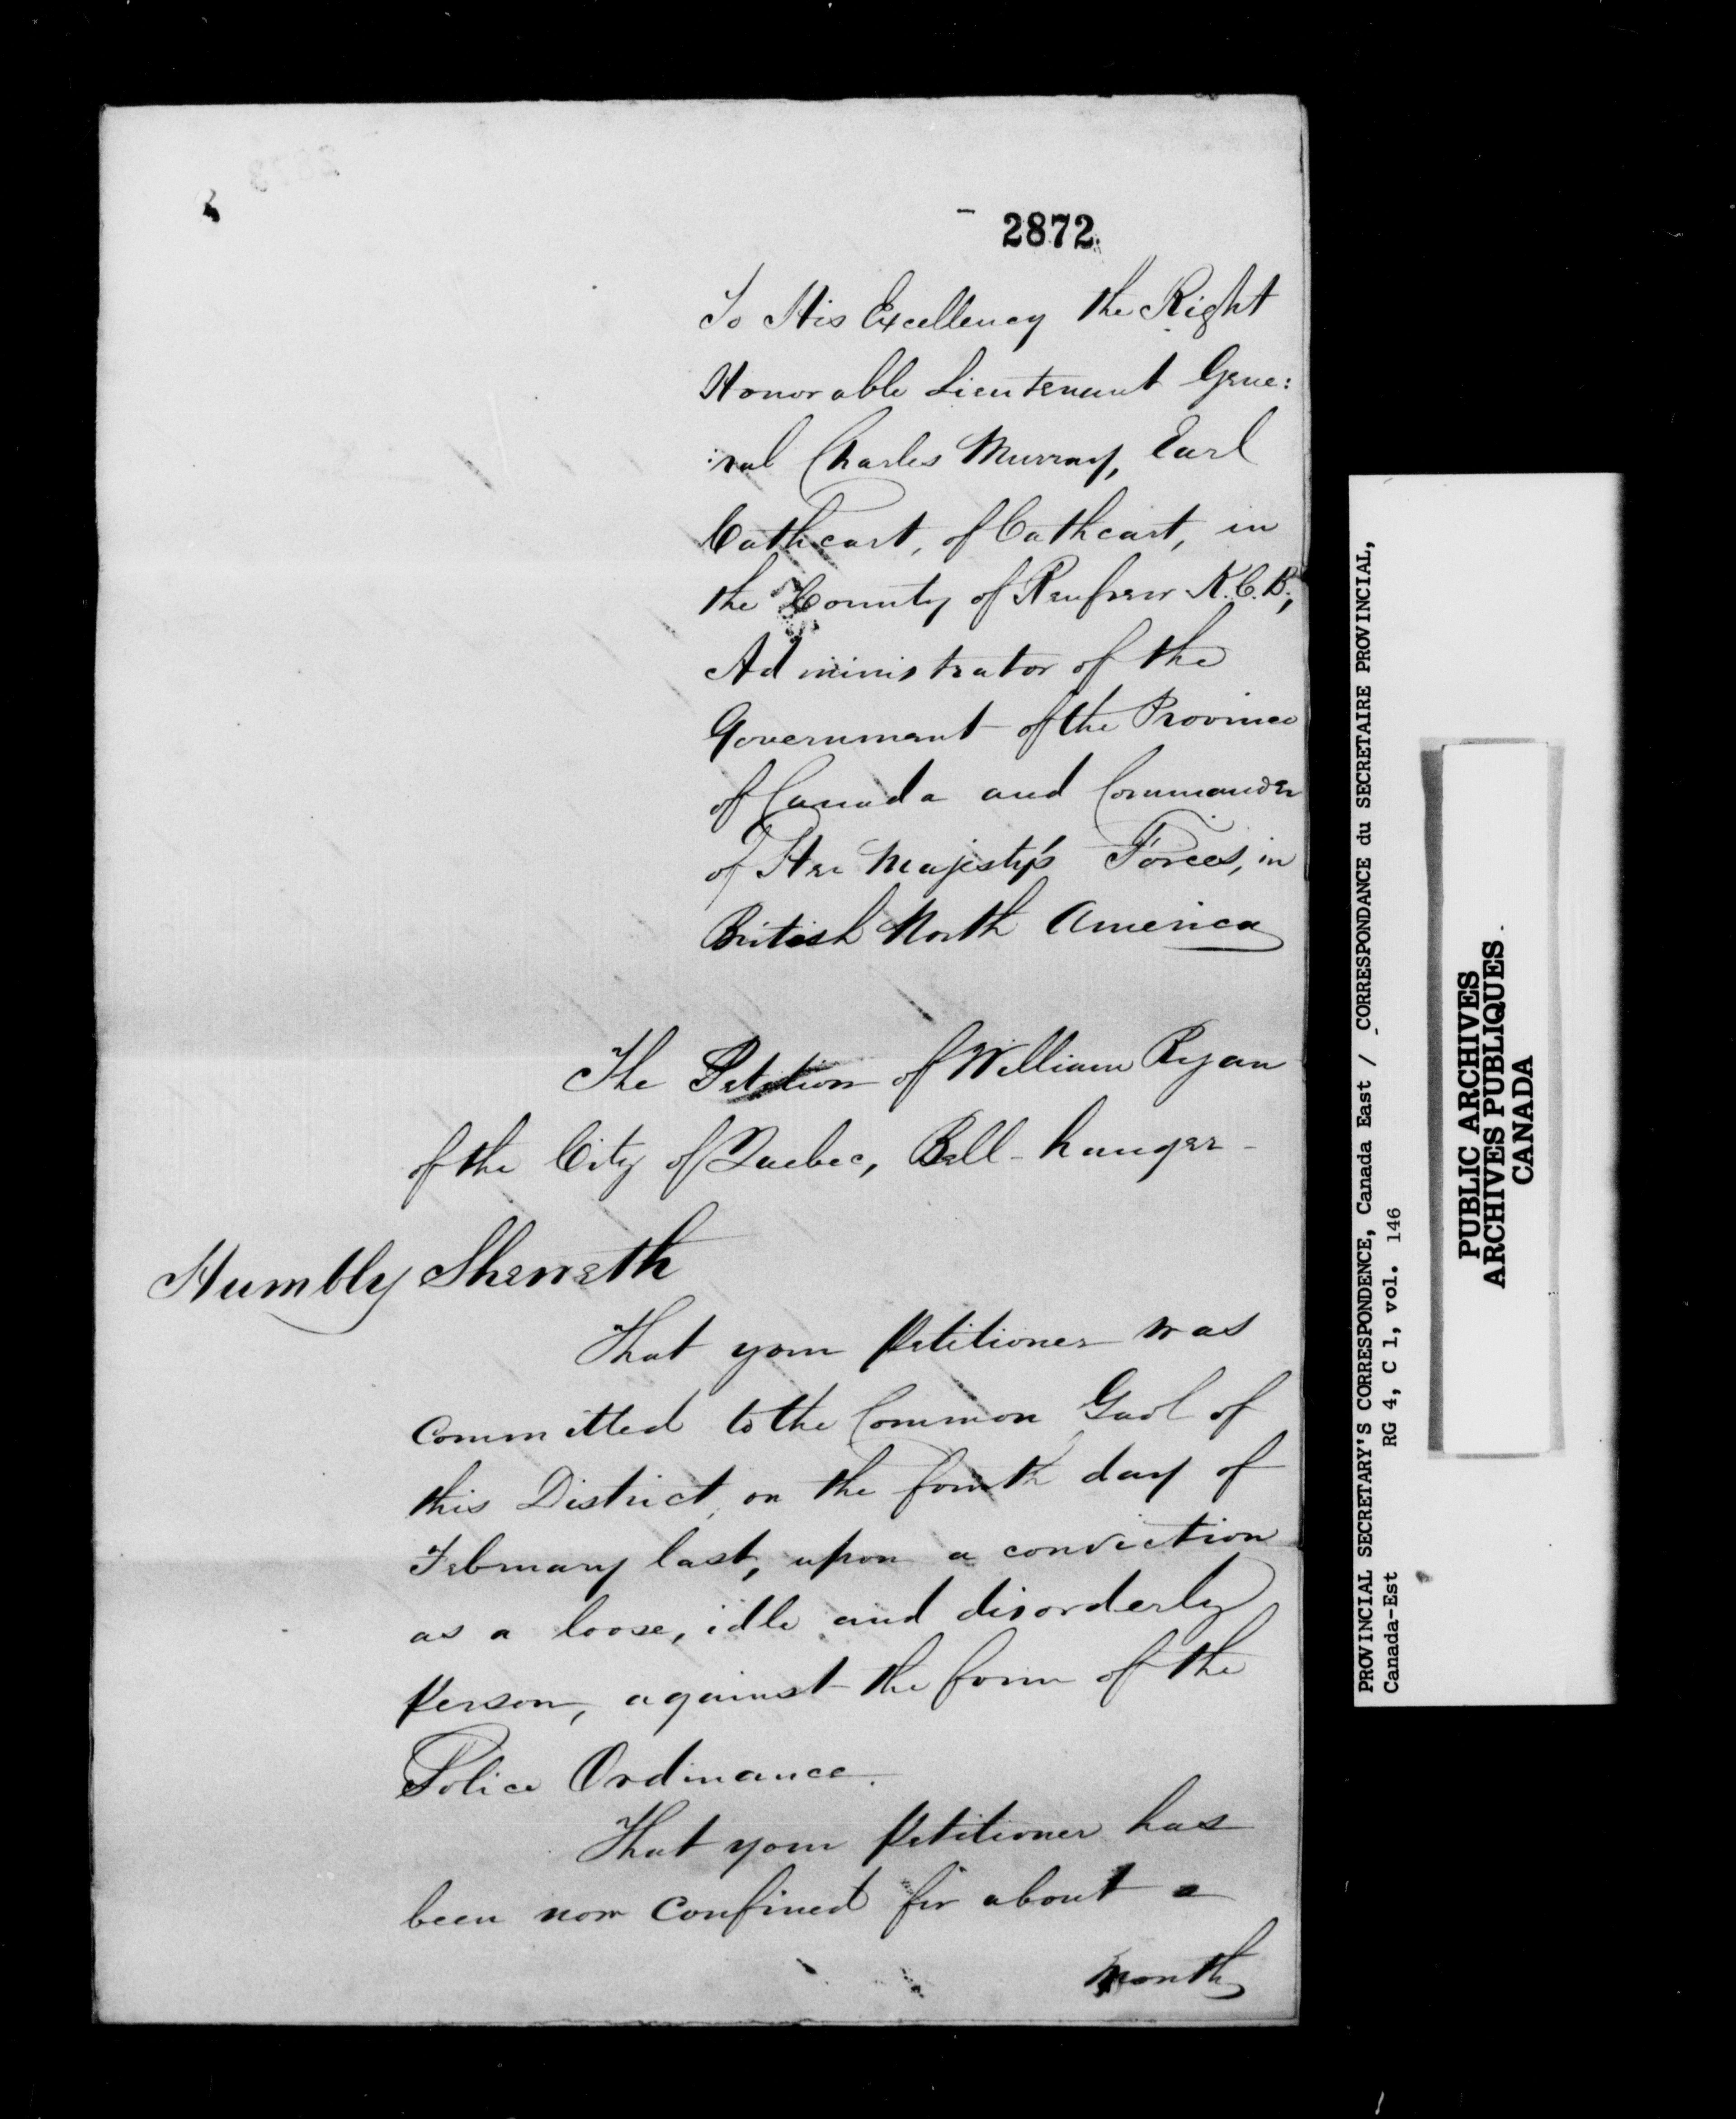 2872
To His Excellency the Right
Honorable Lieutenant Gene:
:ral Charles Murray, Earl
Cathcart, of Cathcart, in
the County of Renfrew K.C.B.,
Administrator of the
Government of the Province
of Canada and Commander
of Her Majesty's Forces, in
British North America
The Petition of William Ryan
of the City of Quebec, Bell-hanger-
Humbly Sheweth
That your Petitioner was
committed to the Common Gaol of
this District, on the fourth day of
February last, upon a conviction
as a loose, idle and disorderly
Person, against the form of the
Police Ordinance.
That your Petitioner has
been now confined for about a
month
PROVINCIAL SECRETARY'S CORRESPONDENCE, Canada East / CORRESPONDANCE du SECRETAIRE PROVINCIAL,
Canada-Est RG 4, C 1, vol. 146
PUBLIC ARCHIVES
ARCHIVES PUBLIQUES
CANADA